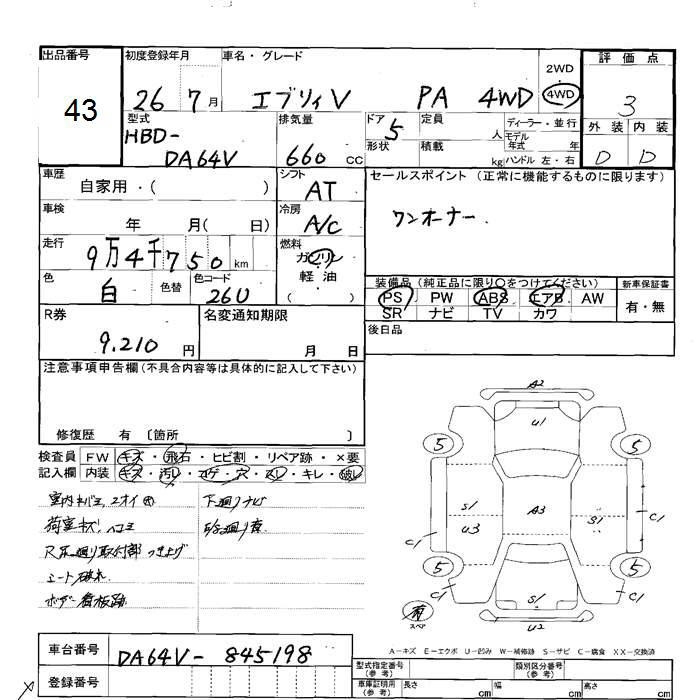 出品番号 初度登録年月 車名・グレード 2WD 評価点
43 26 7月 エブリィV PA 4WD 4WD 3
型式 排気量 ドア 5 定員 人 ディーラー・並行 外装 内装
HBD- モデル年式 年
DA64V 660 CC 形状 積載 kg ハンドル 左・右 D D
車歴 シフト セールスポイント (正常に機能するものに限ります)
自家用・( ) AT
車検 冷房 ワンオーナー.
年 月( 日) A/C
走行 燃料
9万4千750km ガソリン
色 色替 色コード ・ 装備品 (純正品に限り○をつけてください) 新車保証書
白 26U 軽油 PS PW ABS エアB AW 有・無
( ) SR ナビ TV カワ
R券 名変通知期限 後日品
9.210円 月 日
注意事項申告欄 (不具合内容等は具体的に記入して下さい)
修復歴 有 〔箇所 〕
検査員 FW ・キズ・飛石・ヒビ割・リペア跡・×要
記入欄 内装・キズ・汚レ・コゲ・穴・スレ・キレ・破レ
室内キバミ、ニオイ大 下廻りサビ
荷室キズ、ヘコミ
シート破れ
ボデー看板跡
A2
U1
5 5
S1 A3 S1 C1
U3
C1
5 5
C1 C1
S1
有
スペア U2
A-キズ E-エクボ U-凹み W-補修跡 S-サビ C-腐食 XX-交換済
車台番号 DA64V-845198
型式指定番号(参考) 類別区分番号(参考)
登録番号 車庫証明用(参考) 長さ cm 幅 cm 高さ cm